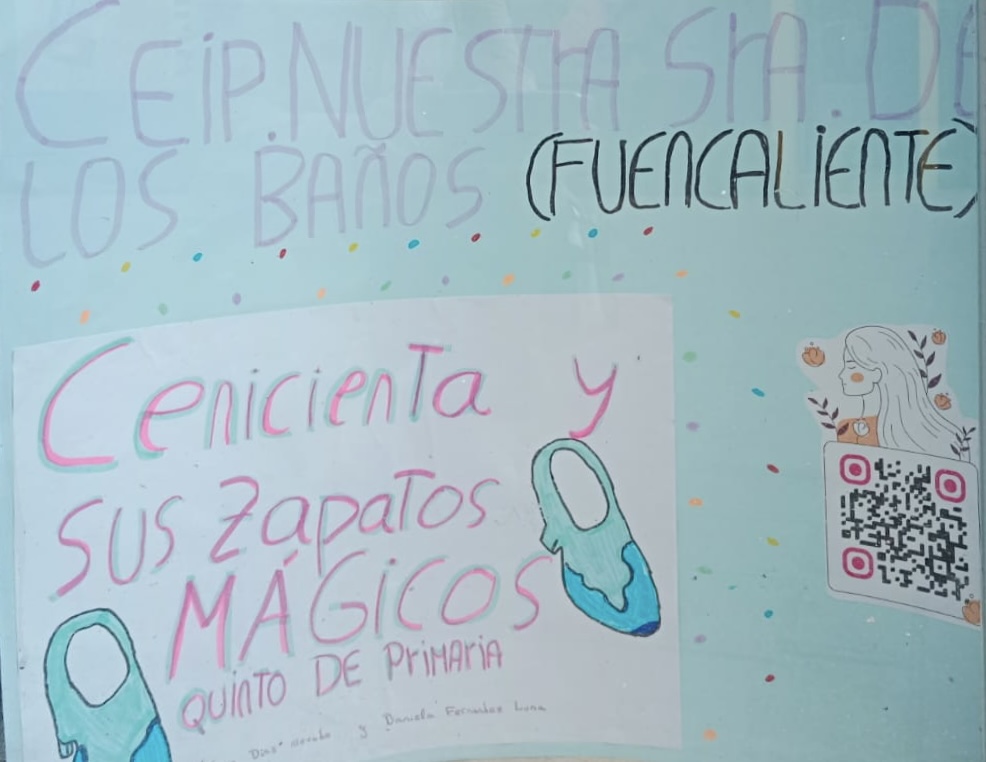 CEIP.NUESTrA SrA. DE
LOS BAÑOS (FUENCALiENTE)
Cenicienta y
SUS Zapatos
MÁGiCOS
QUiNTO DE PriMAriA
y Daniela Fernandez Luna